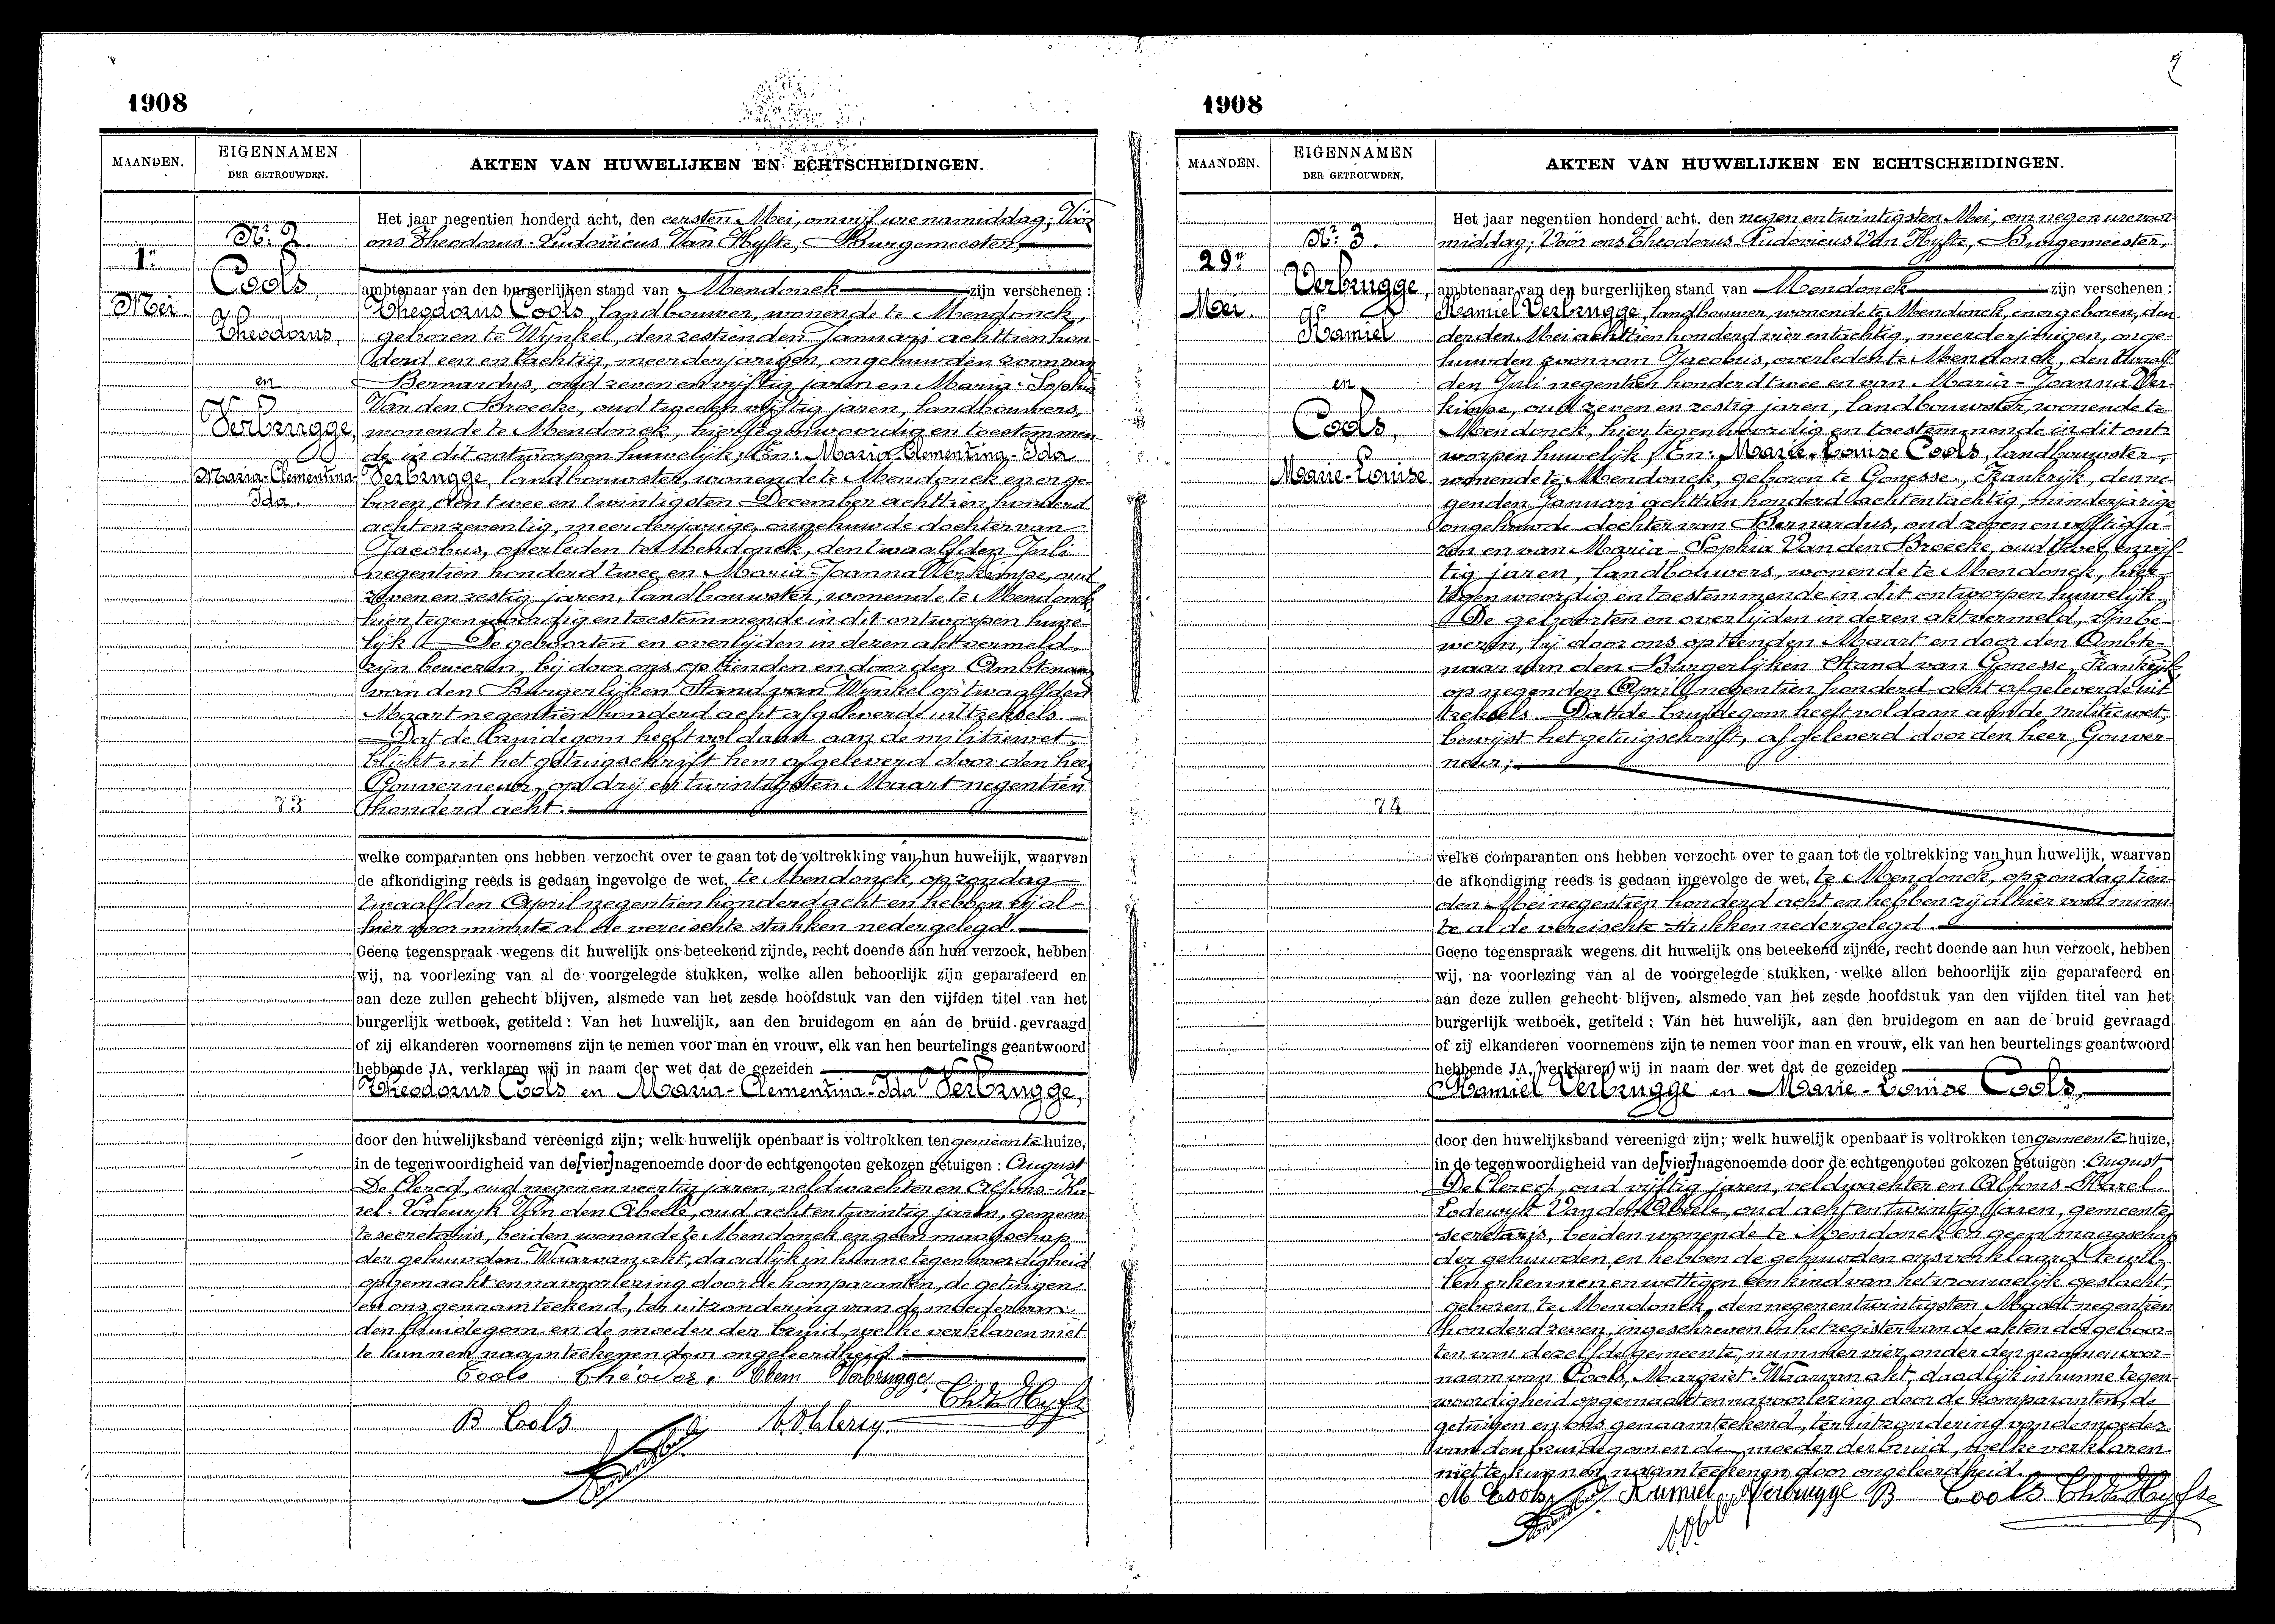 1908
MAANDEN.
EIGENNAMEN
DER GETROUWDEN.
AKTEN VAN HUWELIJKEN EN ECHTSCHEIDINGEN.
1n
Mei
Nr. 2.
Cools,
Theodorus,
en
Verbrugge,
Maria-Clementina-
Ida.
73
Het jaar negentien honderd acht, den eersten Mei, om vijf ure namiddag; Vóór
ons Theodorus-Ludovicus Van Hyfte, Burgemeester,
ambtenaar van den burgerlijken stand van Mendonck zijn verschenen :
Theodorus Cools, landbouwer, wonende te Mendonck,
geboren te Wynkel, den zestienden Januari achttien hon-
derd een en tachtig, meerderjarigen, ongehuwden zoon van
Bernardus, oud zeven en vijftig jaren en Maria-Sophia
Van den Broecke, oud twee en vijftig jaren, landbouwers,
wonende te Mendonck, hier tegenwoordig en toestemmen-
de in dit ontworpen huwelijk; En: Maria-Clementina-Ida
Verbrugge, landbouwster, wonende te Mendonck en er ge-
boren, den twee en twintigsten December achttien honderd
acht en zeventig, meerderjarige, ongehuwde dochter van
Jacobus, overleden te Mendonck, den twaalfden Juli
negentien honderd twee en Maria-Joanna Verkimpe, oud
zeven en zestig jaren, landbouwster, wonende te Mendonck,
hier tegenwoordig en toestemmende in dit ontworpen huwe-
lijk. De geboorten en overlijden in deren akt vermeld,
zijn bewezen, bij door ons op tienden en door den Ambtenaar
van den Burgerlijken Stand van Wynkel op twaalfden
Maart negentien honderd acht afgeleverde uittreksels.
Dat de bruidegom heeft voldaan aan de militiewet,
blijkt uit het getuigschrift hem afgeleverd door den heer
Gouverneur, op drij en twintigsten Maart negentien
honderd acht.
welke comparanten ons hebben verzocht over te gaan tot de voltrekking van hun huwelijk, waarvan
de afkondiging reeds is gedaan ingevolge de wet, te Mendonck, op zondag
twaalfden April negentien honderd acht en hebben zij al-
hier voor minute al de vereischte stukken nedergelegd.
Geene tegenspraak wegens dit huwelijk ons beteekend zijnde, recht doende aan hun verzoek, hebben
wij, na voorlezing van al de voorgelegde stukken, welke allen behoorlijk zijn geparafeerd en
aan deze zullen gehecht blijven, alsmede van het zesde hoofdstuk van den vijfden titel van het
burgerlijk wetboek, getiteld : Van het huwelijk, aan den bruidegom en aan de bruid gevraagd
of zij elkanderen voornemens zijn te nemen voor man en vrouw, elk van hen beurtelings geantwoord
hebbende JA, verklaren wij in naam der wet dat de gezeiden
Theodorus Cools en Maria-Clementina-Ida Verbrugge,
door den huwelijksband vereenigd zijn; welk huwelijk openbaar is voltrokken ten gemeentehuize,
in de tegenwoordigheid van de [vier] nagenoemde door de echtgenoten gekozen getuigen : August
De Clercq, oud negen en veertig jaren, veldwachter en Alfons-Ka-
rel-Lodewyk Van den Abeele, oud acht en twintig jaren, gemeen-
te secretaris, beiden wonende te Mendonck en geen maagschap
der gehuwden. Waarvan akt, daadlijk in hunne tegenwoordigheid
opgemaakt en na voorlezing door de komparanten, de getuigen
en ons genaamteekend, ter uitzondering van de moeder van
den bruidegom en de moeder der bruid, welke verklaren niet
te kunnen naamteekenen door ongeleerdheid.
Cools Théodor. Clem Verbrugge
Th. Van Hyfte
B Cools A. De Clercq.
1908
MAANDEN.
EIGENNAMEN
DER GETROUWDEN.
AKTEN VAN HUWELIJKEN EN ECHTSCHEIDINGEN.
29n
Mei.
Nr. 3.
Verbrugge,
Kamiel
en
Cools,
Marie-Louise.
74
Het jaar negentien honderd acht, den negen en twintigsten Mei, om negen ure voor-
middag; Vóór ons Theodorus-Ludovicus Van Hyfte, Burgemeester,
ambtenaar van den burgerlijken stand van Mendonck zijn verschenen :
Kamiel Verbrugge, landbouwer, wonende te Mendonck, en er geboren, den
derden Mei achttien honderd vier en tachtig, meerderjarigen, onge-
huwden zoon van Jacobus, overleden te Mendonck, den twaalf-
den Juli negentien honderd twee en van Maria-Joanna Ver-
kimpe, oud zeven en zestig jaren, landbouwster, wonende te
Mendonck, hier tegenwoordig en toestemmende in dit ont-
worpen huwelijk; En: Marie-Louise Cools, landbouwster,
wonende te Mendonck, geboren te Gonesse, Frankrijk, den ne-
genden Januari achttien honderd acht en tachtig, minderjarige
ongehuwde dochter van Bernardus, oud zeven en vijftig ja-
ren en van Maria-Sophia Van den Broecke, oud twee en vijf-
tig jaren, landbouwers, wonende te Mendonck, hier
tegenwoordig en toestemmende in dit ontworpen huwelijk.
De geboorten en overlijden in deren akt vermeld, zijn be-
wezen, bij door ons op tienden Maart en door den Ambte-
naar van den Burgerlijken Stand van Gonesse, Frankrijk,
op negenden April negentien honderd acht afgeleverde uit-
treksels. Dat de bruidegom heeft voldaan aan de militiewet,
bewijst het getuigschrift, afgeleverd door den heer Gouver-
neur;
welke comparanten ons hebben verzocht over te gaan tot de voltrekking van hun huwelijk, waarvan
de afkondiging reeds is gedaan ingevolge de wet, te Mendonck, op zondag tien-
den Mei negentien honderd acht en hebben zij alhier voor minu-
te al de vereischte stukken nedergelegd.
Geene tegenspraak wegens dit huwelijk ons beteekend zijnde, recht doende aan hun verzoek, hebben
wij, na voorlezing van al de voorgelegde stukken, welke allen behoorlijk zijn geparafeerd en
aan deze zullen gehecht blijven, alsmede van het zesde hoofdstuk van den vijfden titel van het
burgerlijk wetboek, getiteld : Van het huwelijk, aan den bruidegom en aan de bruid gevraagd
of zij elkanderen voornemens zijn te nemen voor man en vrouw, elk van hen beurtelings geantwoord
hebbende JA, verklaren wij in naam der wet dat de gezeiden
Kamiel Verbrugge en Marie-Louise Cools,
door den huwelijksband vereenigd zijn; welk huwelijk openbaar is voltrokken ten gemeentehuize,
in de tegenwoordigheid van de [vier] nagenoemde door de echtgenoten gekozen getuigen : August
De Clercq, oud vijftig jaren, veldwachter en Alfons-Karel-
Lodewyk Van den Abeele, oud acht en twintig jaren, gemeente
secretaris, beiden wonende te Mendonck en geen maagschap
der gehuwden en hebben de gehuwden ons verklaard te wil-
len erkennen en wettigen een kind van het vrouwelijk geslacht,
geboren te Mendonck, den negen en twintigsten Maart negentien
honderd zeven, ingeschreven in het register van de akten der geboor-
ten van dezelfde gemeente, nummer vier, onder den naam en voor-
naam van Cools, Margriet. Waarvan akt, daadlijk in hunne tegen-
woordigheid opgemaakt en na voorlezing door de komparanten, de
getuigen en ons genaamteekend, ter uitzondering van de moeder
van den bruidegom en de moeder der bruid, welke verklaren
niet te kunnen naamteekenen door ongeleerdheid.
M Cools Kamiel Verbrugge B Cools Th. Van Hyfte